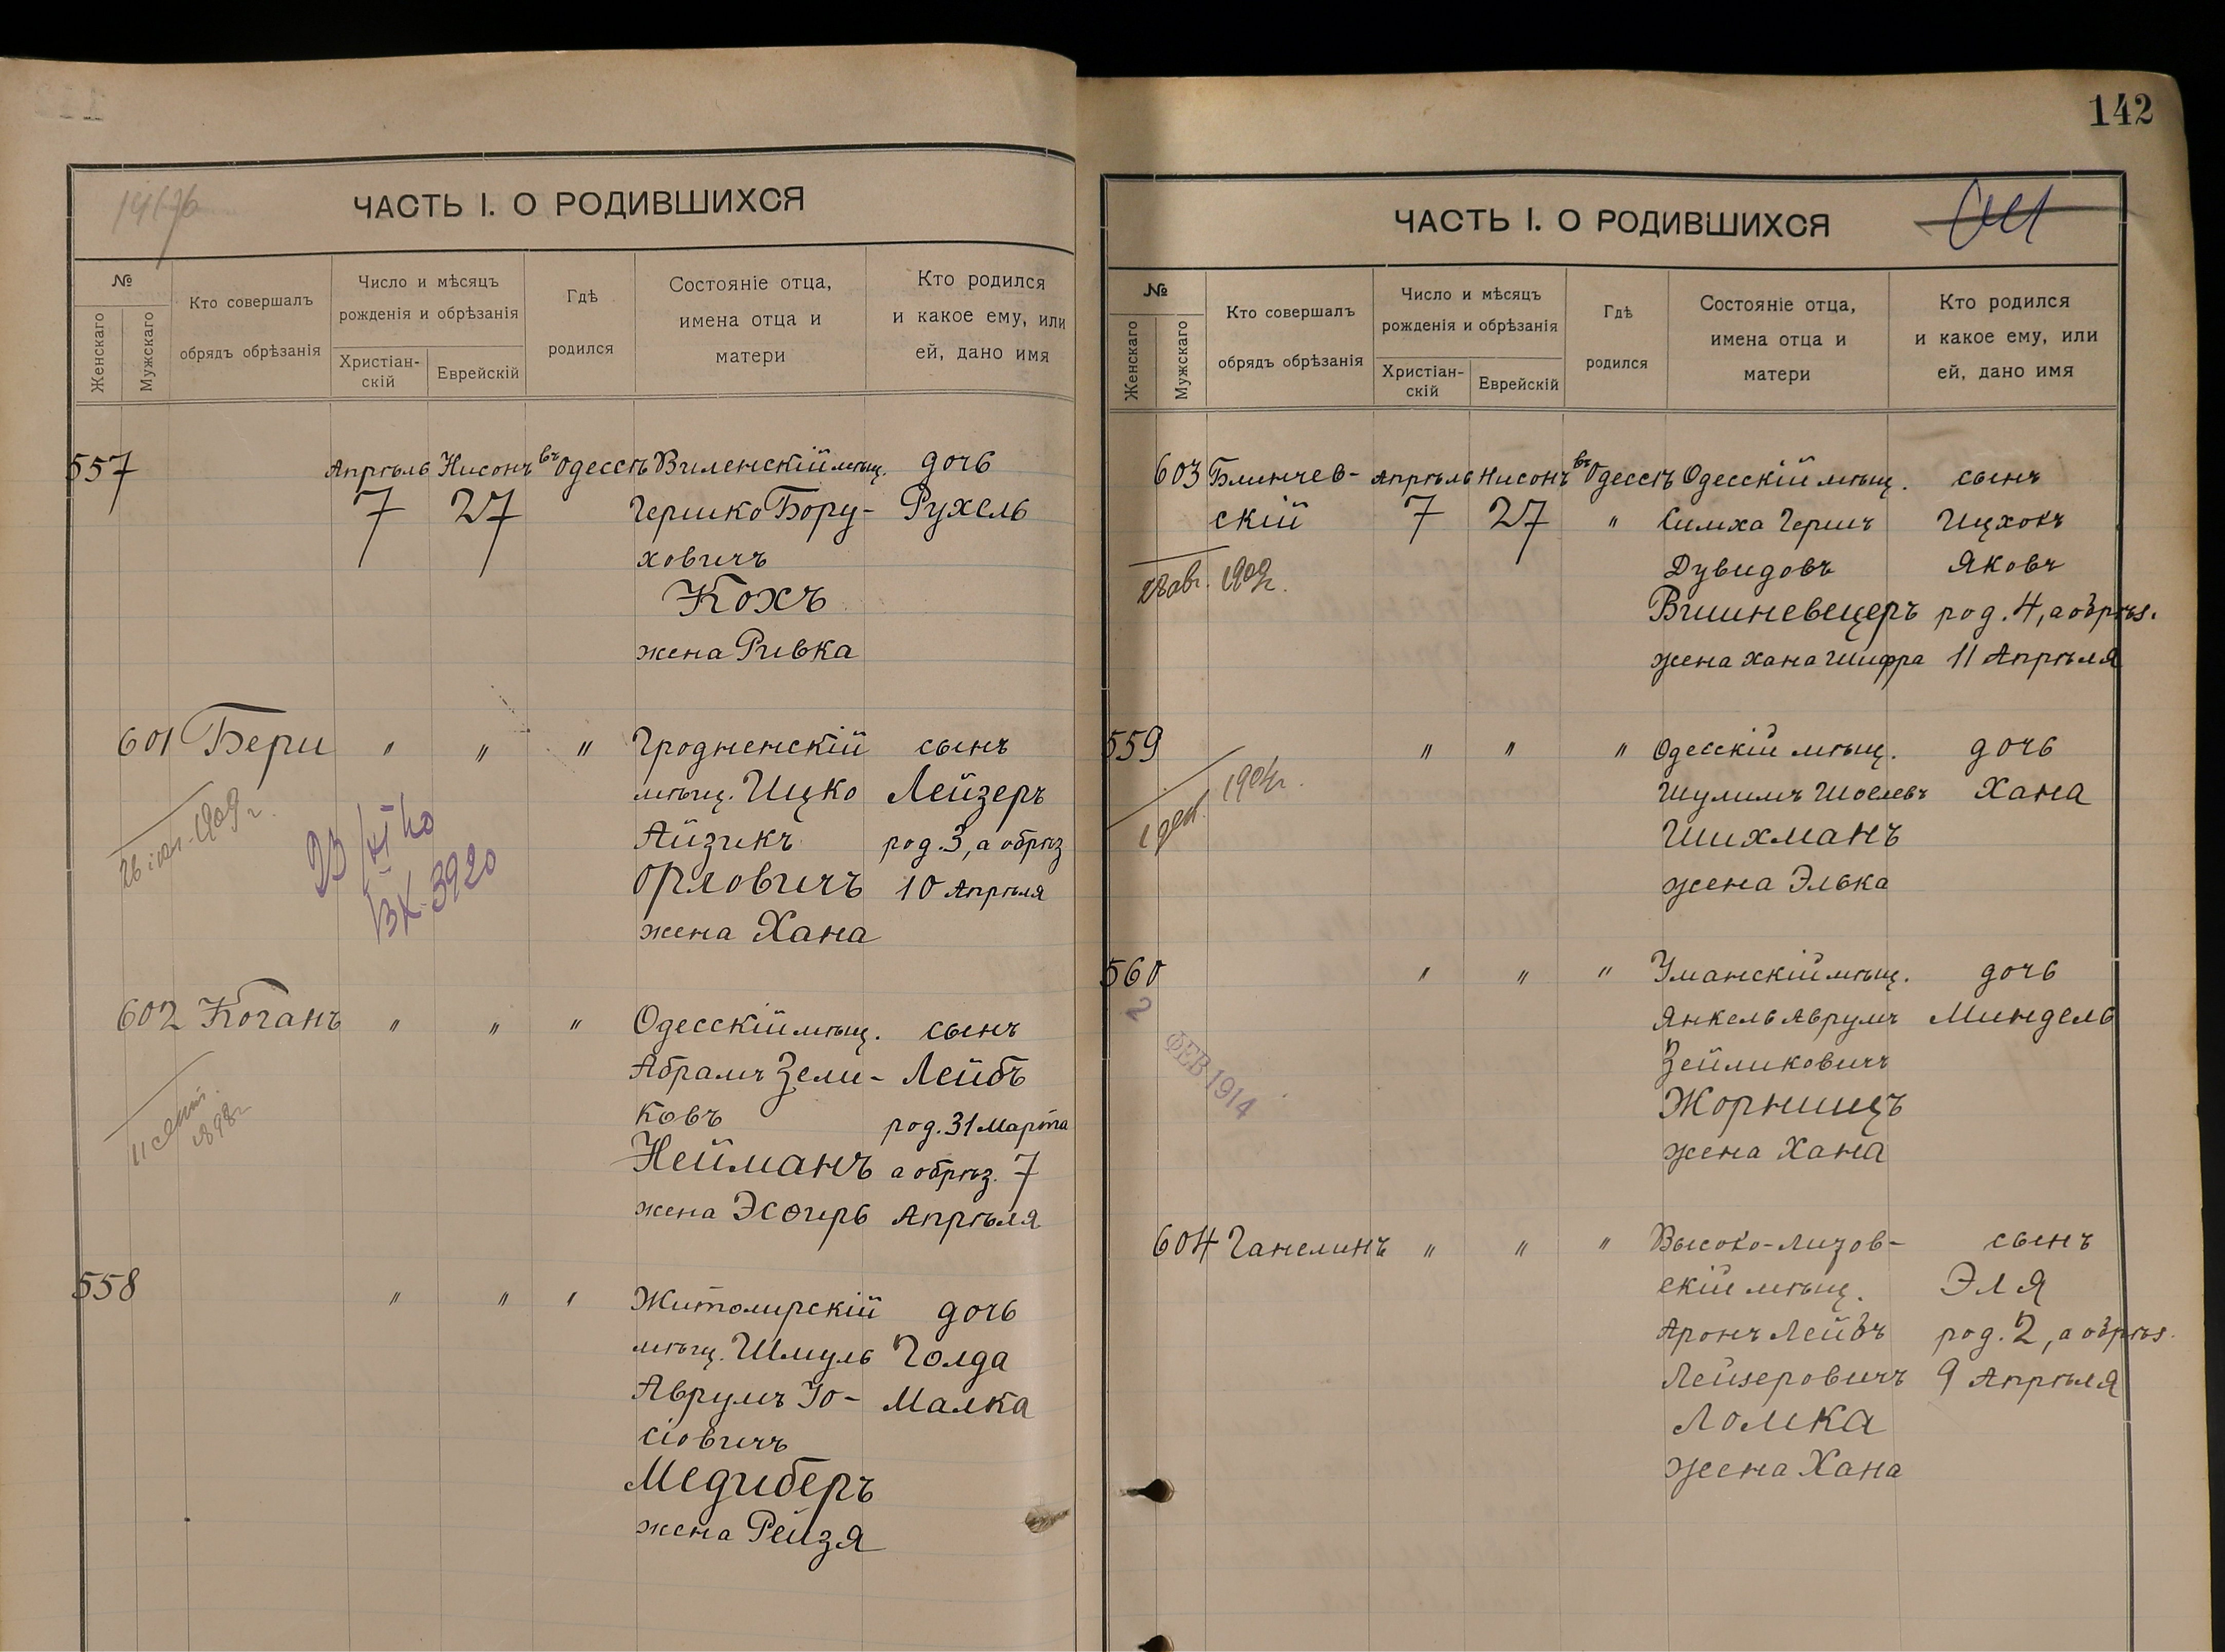 ЧАСТЬ I. О РОДИВШИХСЯ
№
Женскаго
Мужскаго
Кто совершалъ
обрядъ обрѣзанія
Число и мѣсяцъ
рожденія и обрѣзанія
Христіан-
скій
Еврейскій
Гдѣ
родился
Состояніе отца,
имена отца и
матери
Кто родился
и какое ему, или
ей, дано имя
557 Апрѣль Нисонъ въ Одессѣ Виленскій мѣщ. дочь
7 27 Гершко Бору- Рухель
ховичъ
Кохъ
жена Ривка
601 Бери " " " Гродненскій сынъ
мѣщ. Ицко Лейзеръ
Айзикъ род. 3, а обрѣз
Орловичъ 10 Апрѣля
жена Хана
1909 г.
Вх. 3920
602 Коганъ " " " Одесскій мѣщ. сынъ
Абрамъ Зели- Лейбъ
ковъ род. 31 Марта
Нейманъ а обрѣз. 7
жена Эсѳирь Апрѣля
11 сент.
1898 г.
558 " " " Житомирскій дочь
мѣщ. Шмуль Голда
Аврумъ Іо- Малка
сіовичъ
Медиберъ
жена Рейзя
142
ЧАСТЬ I. О РОДИВШИХСЯ
№
Женскаго
Мужскаго
Кто совершалъ
обрядъ обрѣзанія
Число и мѣсяцъ
рожденія и обрѣзанія
Христіан-
скій
Еврейскій
Гдѣ
родился
Состояніе отца,
имена отца и
матери
Кто родился
и какое ему, или
ей, дано имя
603 Блинчев- Апрѣль Нисонъ въ Одессѣ Одесскій мѣщ. сынъ
скій 7 27 " Симха Гершъ Ицхокъ
Дувидовъ Яковъ
28 авг. 1909 г.
Вишневецеръ род. 4, а обрѣз.
жена Хана Шифра 11 Апрѣля
559 " " " Одесскій мѣщ. дочь
Шулимъ Шоелевъ Хана
Шихманъ
жена Элька
560 " " " Уманскій мѣщ. дочь
Янкель Аврумъ Миндель
Зейликовичъ
Жорнищъ
жена Хана
2
ФЕВ 1914
604 Ганелинъ " " " Высоко-Лизов- сынъ
скій мѣщ. Эля
Аронъ Лейбъ род. 2, а обрѣз.
Лейзеровичъ 9 Апрѣля
Ломка
жена Хана